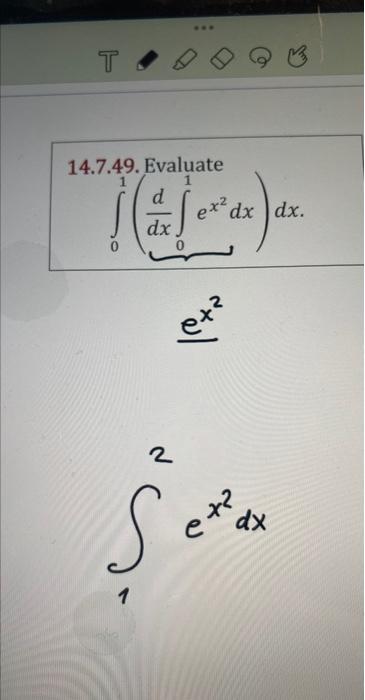 T
14.7.49. Evaluate
∫₀¹ (d/dx ∫₀¹ e^{x²} dx) dx.
e^{x²}
∫₁² e^{x²} dx